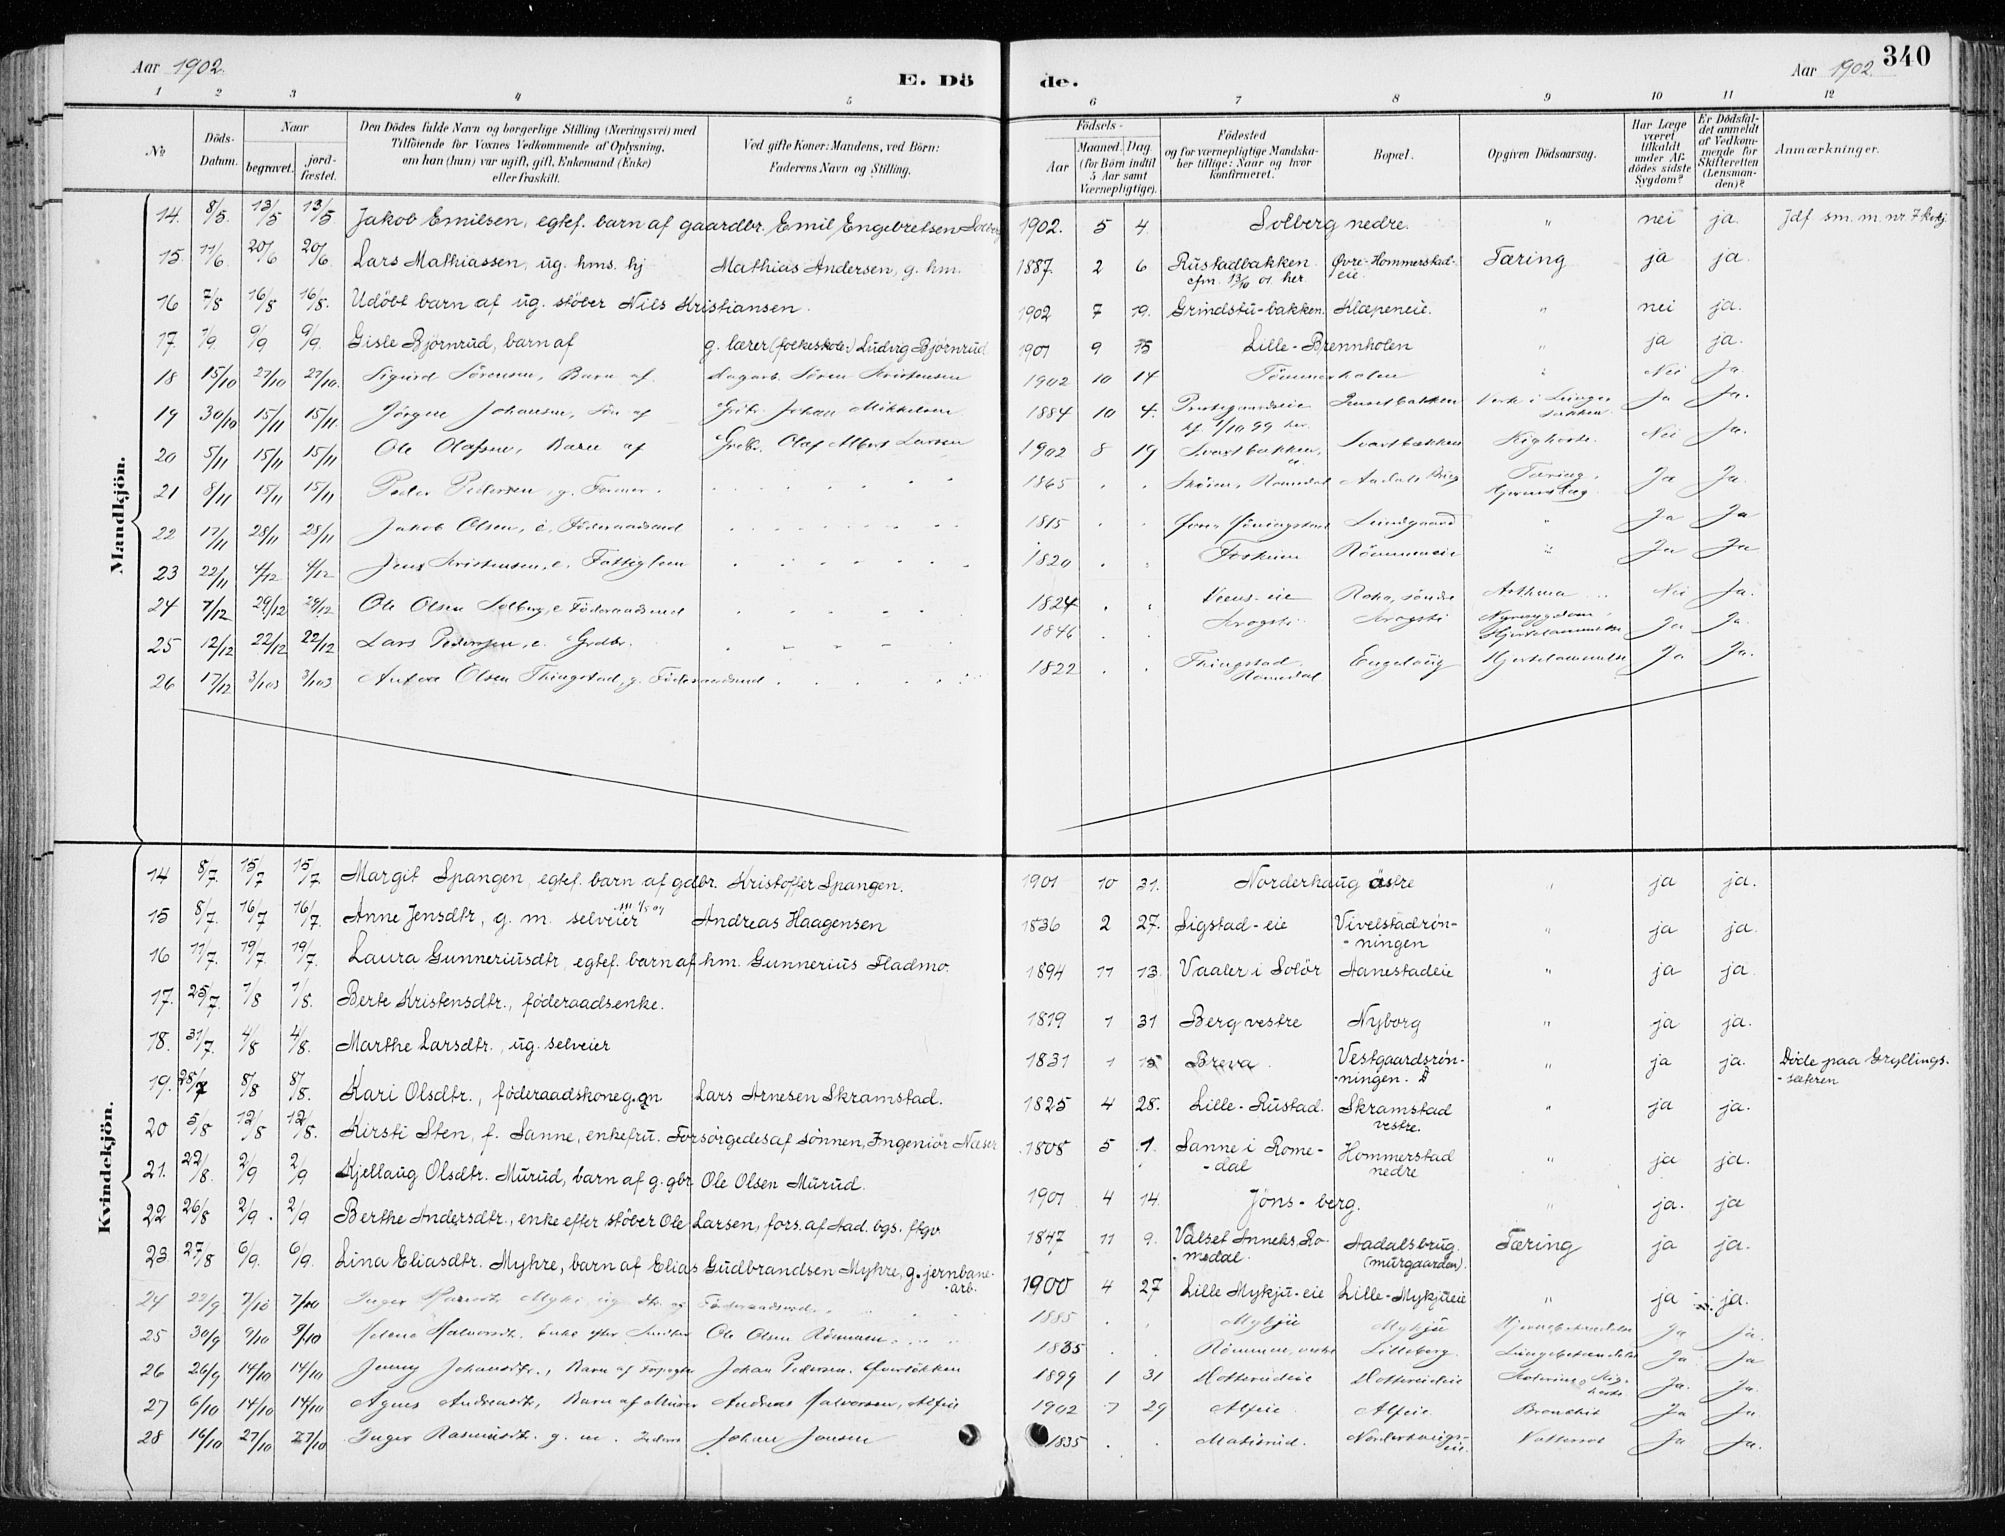 Aar 1902.
E. Dö
de.
Aar 1902.
340
1 2 3 4 5 6 7 8 9 10 11 12
No.
Döds-Datum.
Naar
begravet.
jord-fæstet.
Den Dödes fulde Navn og borgerlige Stilling (Næringsvei) med
Tilföiende for Voxnes Vedkommende af Oplysning,
om han (hun) var ugift, gift, Enkemand (Enke)
eller fraskilt.
Ved gifte Koner: Mandens, ved Börn:
Faderens Navn og Stilling.
Födsels-
Aar
Maaned. Dag
(for Börn indtil
5 Aar samt
Værnepligtige).
Födested
og for værnepligtige Mandska-
ber tillige: Naar og hvor
konfirmeret.
Bopæl.
Opgiven Dödsaarsag.
Har Læge
været
tilkaldt
under Af-
dödes sidste
Sygdom?
Er Dödsfal-
det anmeldt
af Vedkom-
mende for
Skifteretten
(Lensman-
den)?
Anmærkninger.
Mandkjön.
14. 8/5. 13/5 13/5 Jakob Emilsen, egtef. barn af gaardbr. Emil Engebretsen Solberg 1902. 5 4. Solberg nedre. " nei ja. Jdf sm. m. nr. 7 kvkj
15. 11/6. 20/6 20/6. Lars Mathiassen, ug. hms. hj Mathias Andersen, g. hm. 1887. 2 6 Rustadbakken cfm. 13/10 01 her. Øvre-Hommerstad-eie. Tæring ja ja.
16 7/8 16/8 16/8. Udöbt barn af ug. stöber Nils Kristiansen. 1902 7 19. Grindstu-bakken. Klæpeneie. " nei ja.
17. 1/9. 9/9 9/9. Gisle Björnrud, barn af g. lærer (folkeskole) Ludvig Björnrud 1901 9 15 Lille-Brennholen " ja ja.
18 15/10 27/10 27/10. Sigurd Sörensen, Barn af Sören Kristensen 1902 10 14 Tömmerholen " Nei Ja.
19 30/10 15/11 15/11. Jörgen Johansen, Sön af Johan Mikkelsen 1884 10 4. kf. 1/10 99 her. Ja Ja.
20 5/11 15/11 15/11 Ole Olafsen, Barn af Olaf Albert Larsen 1902 8 19 Svartbækken Svartbækken Kighoste. Nei Ja.
21 8/11 15/11 15/11 Peder Pedersen, g. 1865 . . Romedal Aadals Brug Tæring, Ja Ja.
22 17/11 28/11 28/11 Jakob Olsen, e. Föderaadsmd 1815 . . Lundgaard " Ja Ja
23 22/11 4/12 4/12 Jens Kristensen, e. Fattiglem 1820 . . Römmeneie " Ja Ja
24 7/12 29/12 29/12 Ole Olsen Solberg, e Föderaadsmd 1824 . . söndre Asthma Nei Ja.
25 12/12 22/12 22/12 Lars Pedersen, e. Grdbr. 1846 . . Krogsti Krogsti Nyresygdom, Hjertelammelse Ja Ja.
26 17/12 3/1 03 3/1 03 Olsen Thingstad, g. Föderaadsmd 1822 . . Thingstad Romedal Engelaug Hjertelammelse Ja Ja.
Kvindekjön.
14 8/7. 15/7 15/7. Margit Spangen, egtef. barn af gdbr. Kristoffer Spangen. 1901 10 31. Norderhaug østre " ja ja.
15 8/7. 16/7 16/7. Anne Jensdtr, g. m. selveier Andreas Haagensen 1836 2 27. Sigstad-eie Vivelstadrön--ningen " ja ja.
16 11/7. 19/7. 19/7. Laura Gunneriusdtr, egtef. barn af hm. Gunnerius Fladmo. 1894 11 13. Vaaler i Solör Aanestadeie " ja ja.
17. 25/7. 1/8 1/8. Berte Kristensdtr., föderaadsenke. 1819 1 31 Berg vestre Nyborg " ja ja.
18. 31/7. 4/8 4/8. Marthe Larsdtr., ug. selveier 1831 1 15 Breva. Vestgaardsrön--ningen. " ja ja. Döde paa Gryllings--sætren
19. 28/7 8/8 8/8. Kari Olsdtr., föderaadskone g. Lars Arnesen Skramstad. 1825 4 28. Lille-Rustad. Skramstad vestre. " ja ja.
20 5/8 12/8 12/8. Kirsti Sten, f. Sanne, enkefru. Forsörgedes af sönnen, Ingeniör Næser 1808 5 1. Sanne i Rome--dal Hommerstad nedre " ja ja.
21. 22/8. 2/9 2/9 Kjellaug Olsdtr. Murud, barn af g. gbr. Ole Olsen Murud. 1901 4 14. Jöns-berg. " ja. ja
22 26/8 2/9. 2/9 Berthe Andersdtr., enke efter stöber Ole Larsen, fors. af Aad. bgs. ftgv. 1847 11 9. Valset Anneks. Ro-medal. Aadalsbrug. (murgaarden). Tæring ja ja.
23. 27/8 6/9. 6/9. Lina Eliasdtr. Myhre, barn af Elias Gudbrandsen Myhre, g. jernbane-arb. 1900 4 27 Lille Mykju-eie Lille-Mykjueie " ja ja.
24 22/9 7/10 7/10 Inger 1885 . . Mykju Mykju Ja ja.
25 30/9 9/10 9/10 Helene Halvorsdtr. Enke efter Ole Olsen Römmen 1835 . . Römmen, Lilleberg. Lungebetændelse Ja. Ja
26 26/9 14/10 14/10 Jenny Johansdtr., Barn af Johan Pedersen. 1899 1 31 Ja. Ja.
27 6/10 14/10 14/10 Agnes Andreasdtr, Barn af Murer Andreas Halvorsen, Alfeie 1902 7 29 Alfeie Alfeie. Bronchit Ja Ja
28 16/10 27/10 27/10 Inger Rasmusdtr. g. m. Johan Jensen 1835 . . Norderhaugs-eie. Vattersot Ja Ja.